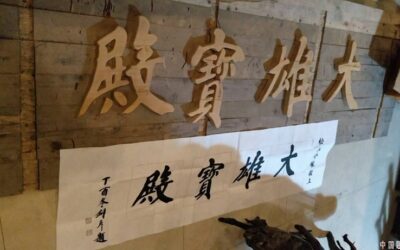 大雄寶殿
大雄寶殿
丁酉冬 題
中国